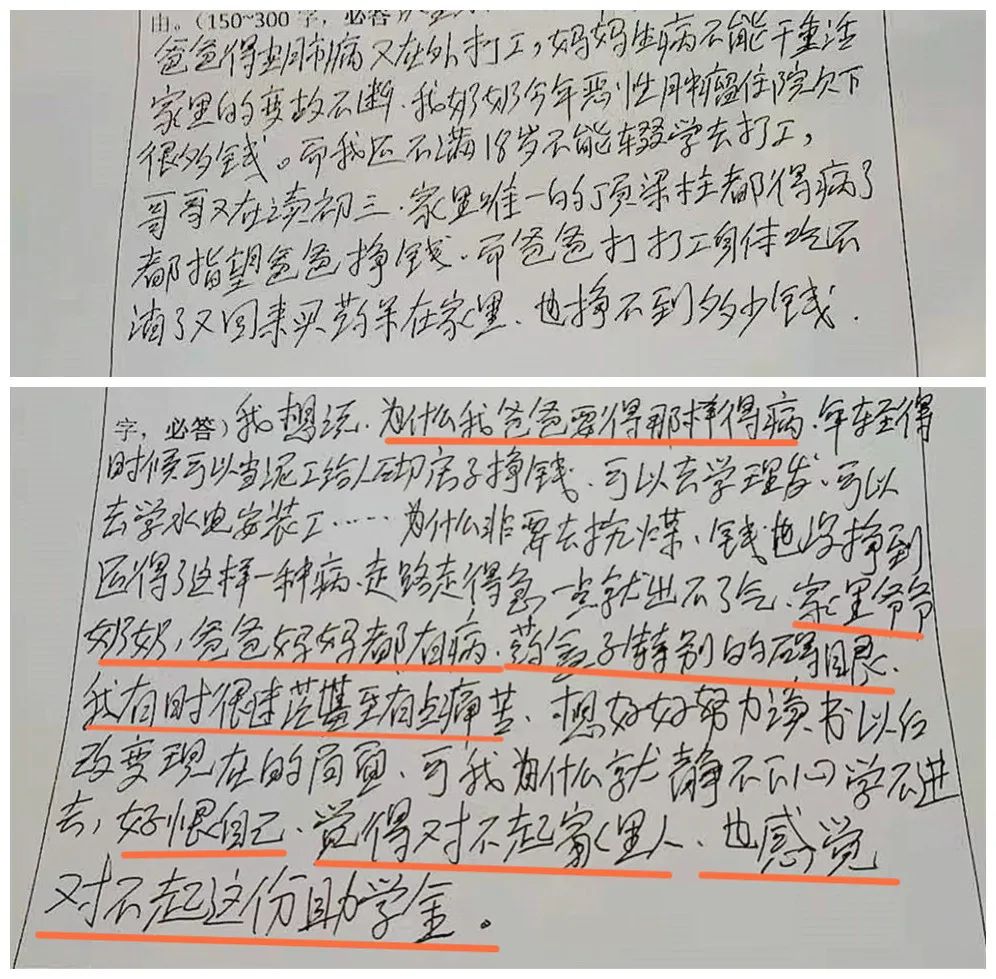 由。(150~300字，必答)
爸爸得尘肺病又在外打工,妈妈生病不能干重活
家里的变故不断.我奶奶今年恶性肿瘤住院欠下
很多钱。而我还不满18岁不能辍学去打工,
哥哥又在读初三.家里唯一的顶梁柱都得病了
都指望爸爸挣钱.而爸爸打打工身体吃不
消了又回来买药呆在家里.也挣不到多少钱.
字，必答)我想说.为什么我爸爸要得那样得病.年轻得
时候可以当泥工给人砌房子挣钱.可以去学理发.可以
去学水电安装工……为什么非要去挖煤、钱也没挣到
还得了这样一种病.走路走得急一点就出不了气.家里爷爷
奶奶,爸爸妈妈都有病.药盒子特别的碍眼.
我有时很迷茫甚至有点痛苦.想好好努力读书以后
改变现在的局面.可我为什么就静不下心学不进
去,好恨自己.觉得对不起家里人.也感觉
对不起这份助学金。